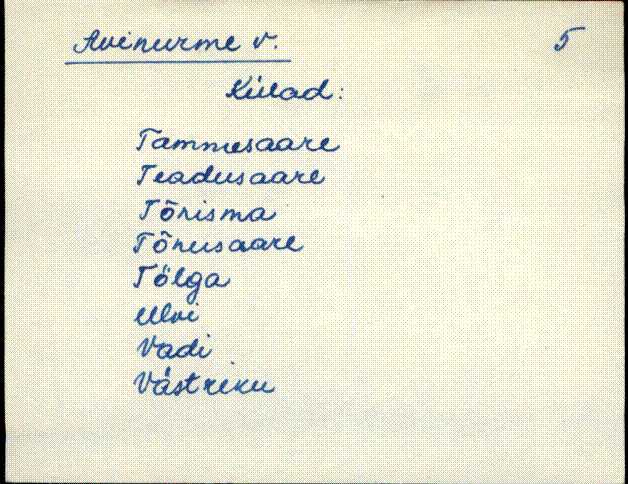 Avinurme v. 5
Külad:
Tammesaare
Teadusaare
Tõrisma
Tõnusaare
Tölga
Ulvi
Vadi
Västriku